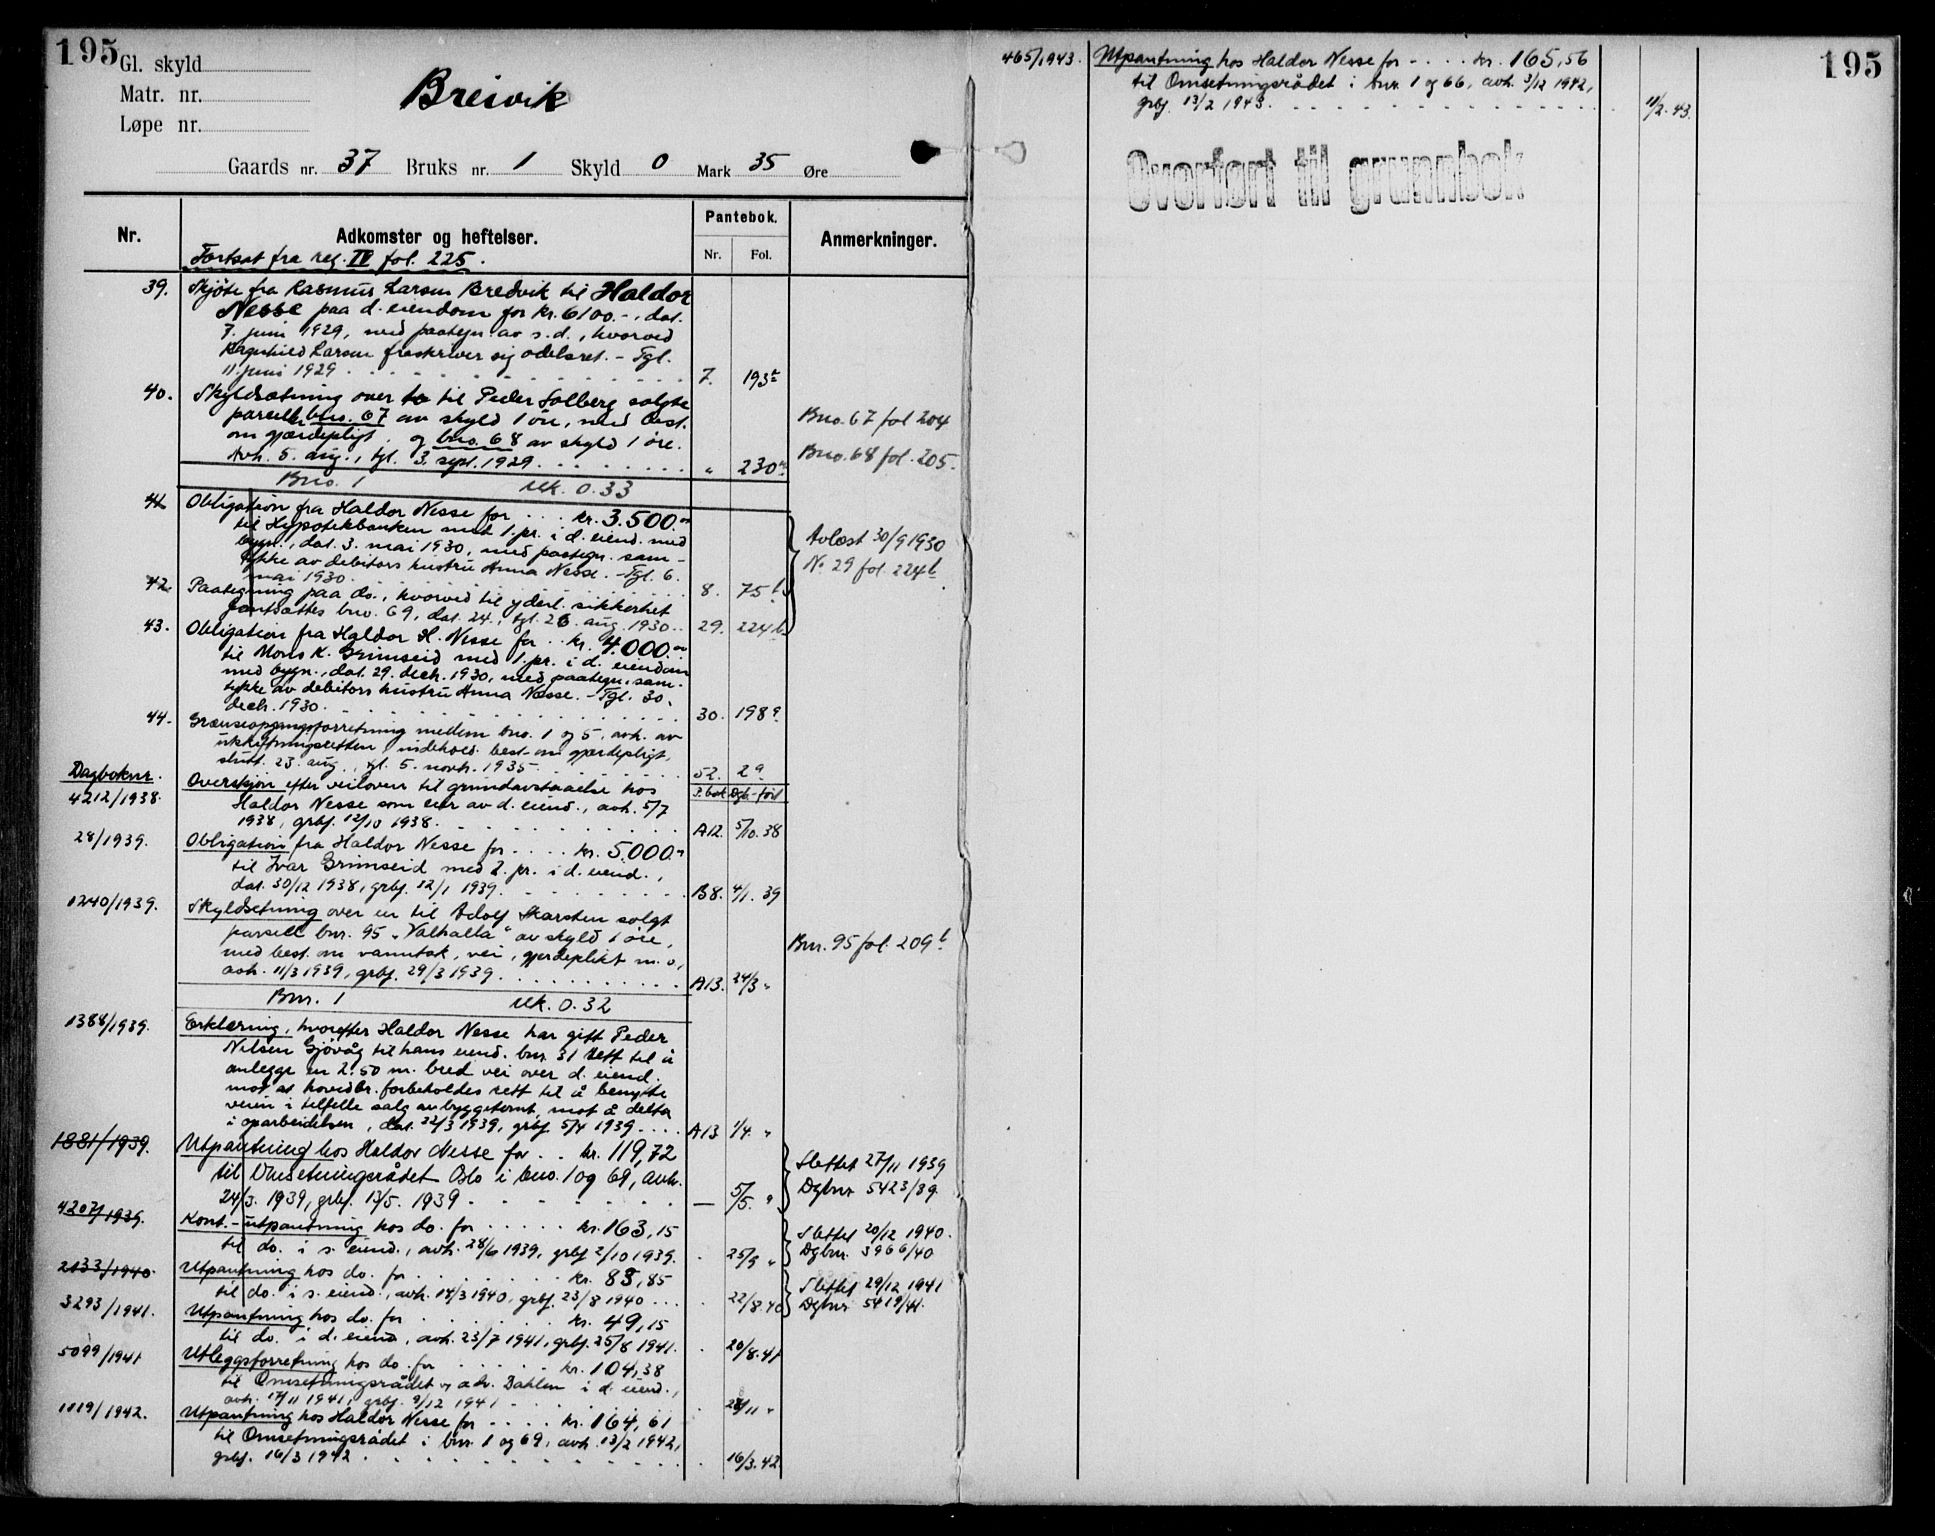 195
Gl. skyld
Matr. nr.
Løpe nr.
Breivik
Gaards nr. 37 Bruks nr. 1 Skyld 0 Mark 35 Øre
Nr. Adkomster og heftelser. Pantebok. Nr. Fol. Anmerkninger.
Fortsat fra reg. IV fol. 225.
39. Skjøte fra Rasmus Larsen Breivik til Haldor
Nesse paa d. eiendom for kr. 6100.-, dat.
7. juni 1929, med paategn. av s.d., hvorved
Ragnhild Larsen fraskriver sig odelsret. - Tgl.
11. juni 1929 . . . 7. 193
40. Skyldsætning over to til Peder Solberg solgte
parceller bno. 67 av skyld 1 øre, med best.
om gjærdepligt, og bno. 68 av skyld 1 øre.
Avh. 5. aug., tgl. 3. sept. 1929 . . . " 230
Bno. 67 fol 204
Bno. 68 fol. 205.
Bno. 1 Mk. 0.33
41. Obligation fra Haldor Nesse for . . . kr. 3.500.
til Hypotekbanken mot 1. pr. i d. eiend. med
bygn., dat. 3. mai 1930, med paategn. sam-
tykke av debitors hustru Anna Nesse. - Tgl. 6.
mai 1930. . . . 8. 75 b
42. Paategning paa do., hvorved til yderl. sikkerhet
pantsattes bno. 69, dat. 24., tgl. 26. aug. 1930 . . 29. 224 b
Avlæst 30/9 1930
No. 29 fol. 224 b
43. Obligation fra Haldor H. Nesse for . . kr. 4.000.
til Mons K. Grimseid med 1. pr. i d. eiendom
med bygn., dat. 29. decb. 1930, med paategn. sam-
tykke av debitors hustru Anna Nesse. - Tgl. 30.
decb. 1930. . . . 30. 198 a
44. Grænseopgangsforretning mellem bno. 1 og 5, avh. av
utskiftningsretten, indehold. best. om gjærdepligt,
slutt. 23. aug., tgl. 5. novb. 1935 . . . 52. 2 a
Dagboknr. P. bok Dgb.-ført
4212/1938. Overskjøn efter veiloven til grundavstaaelse hos
Haldor Nesse som eier av d. eiend., avh. 5/7
1938, grbf. 12/10 1938. . . . A12. 5/10. 38
28/1939. Obligation fra Haldor Nesse for . . . . kr. 5.000.
til Ivar Grimseid med 2. pr. i d. eiend.,
dat. 30/12 1938, grbf. 12/1 1939. . . . B8. 4/1. 39
1240/1939. Skyldsetning over en til Adolf Skarsten solgt
parsell bnr. 95 "Valhalla" av skyld 1 øre,
med best. om vanntak, vei, gjerdeplikt m.v.,
avh. 11/3 1939, grbf. 29/3 1939 . . . A13. 24/3 "
Bnr. 95 fol. 209 b
Bnr. 1 Mk. 0.32
1388/1939. Erklæring, hvorefter Haldor Nesse har gitt Peder
Nilsen Gjøvåg til hans eiend. bnr. 31 rett til å
anlegge en 2.50 m. bred vei over d. eiend.
mot at hovedbr. forbeholdes rett til å benytte
veien i tilfelle salg av byggetomt, mot å delta
i oparbeidelsen, dat. 22/3 1939, grbf 5/4 1939 . . . . A13 1/4. "
1881/1939. Utpantning hos Haldor Nesse for . . kr. 119,72
til Omsetningsrådet Oslo i bno. 1 og 69, avh.
24/3. 1939, grbf. 13/5. 1939 . . . — 5/5. "
Slettet 27/11 1939
Dgbnr 5423/39.
4207/1939. Kont.-utpantning hos do. for . . . . . kr. 163,15
til do. i s. eiend., avh. 28/6 1939, grbf 2/10 1939. . 25/9 "
Slettet 20/12 1940.
Dgbnr. 3966/40
2133/1940. Utpantning hos do. for . . . . . . . kr. 83,85
til do. i s. eiend., avh. 14/3 1940, grbf. 23/8 1940 . . . . 22/8.40
Slettet 29/12 1941
Dgbnr 5419/41.
3293/1941. Utpantning hos do. for . . . . . . . kr. 49,15
til do. i d. eiend., avh. 23/7 1941, grbf. 25/8 1941. . 20/8.41
5099/1941 Utleggsforretning hos do. for . . . . . . kr. 104,38
til Omsetningsrådet v, adv. Dahlen i d. eiend.,
avh. 17/11 1941, grbf. 9/12 1941 . . . 28/11 "
1019/1942. Utpantning hos Haldor Nesse for . . . . kr. 164,61
til Omsetningsrådet i bnr. 1 og 69, avh. 13/2 1942,
grbf. 16/3 1942 . . . 16/3.42
195
465/1943. Utpantning hos Haldor Nesse for - . . . kr. 165,56
til Omsetningsrådet i bnr. 1 og 66, avh. 3/12 1942,
grbf. 13/2 1943. . . . 11/2.43.
Overført til grunnbok